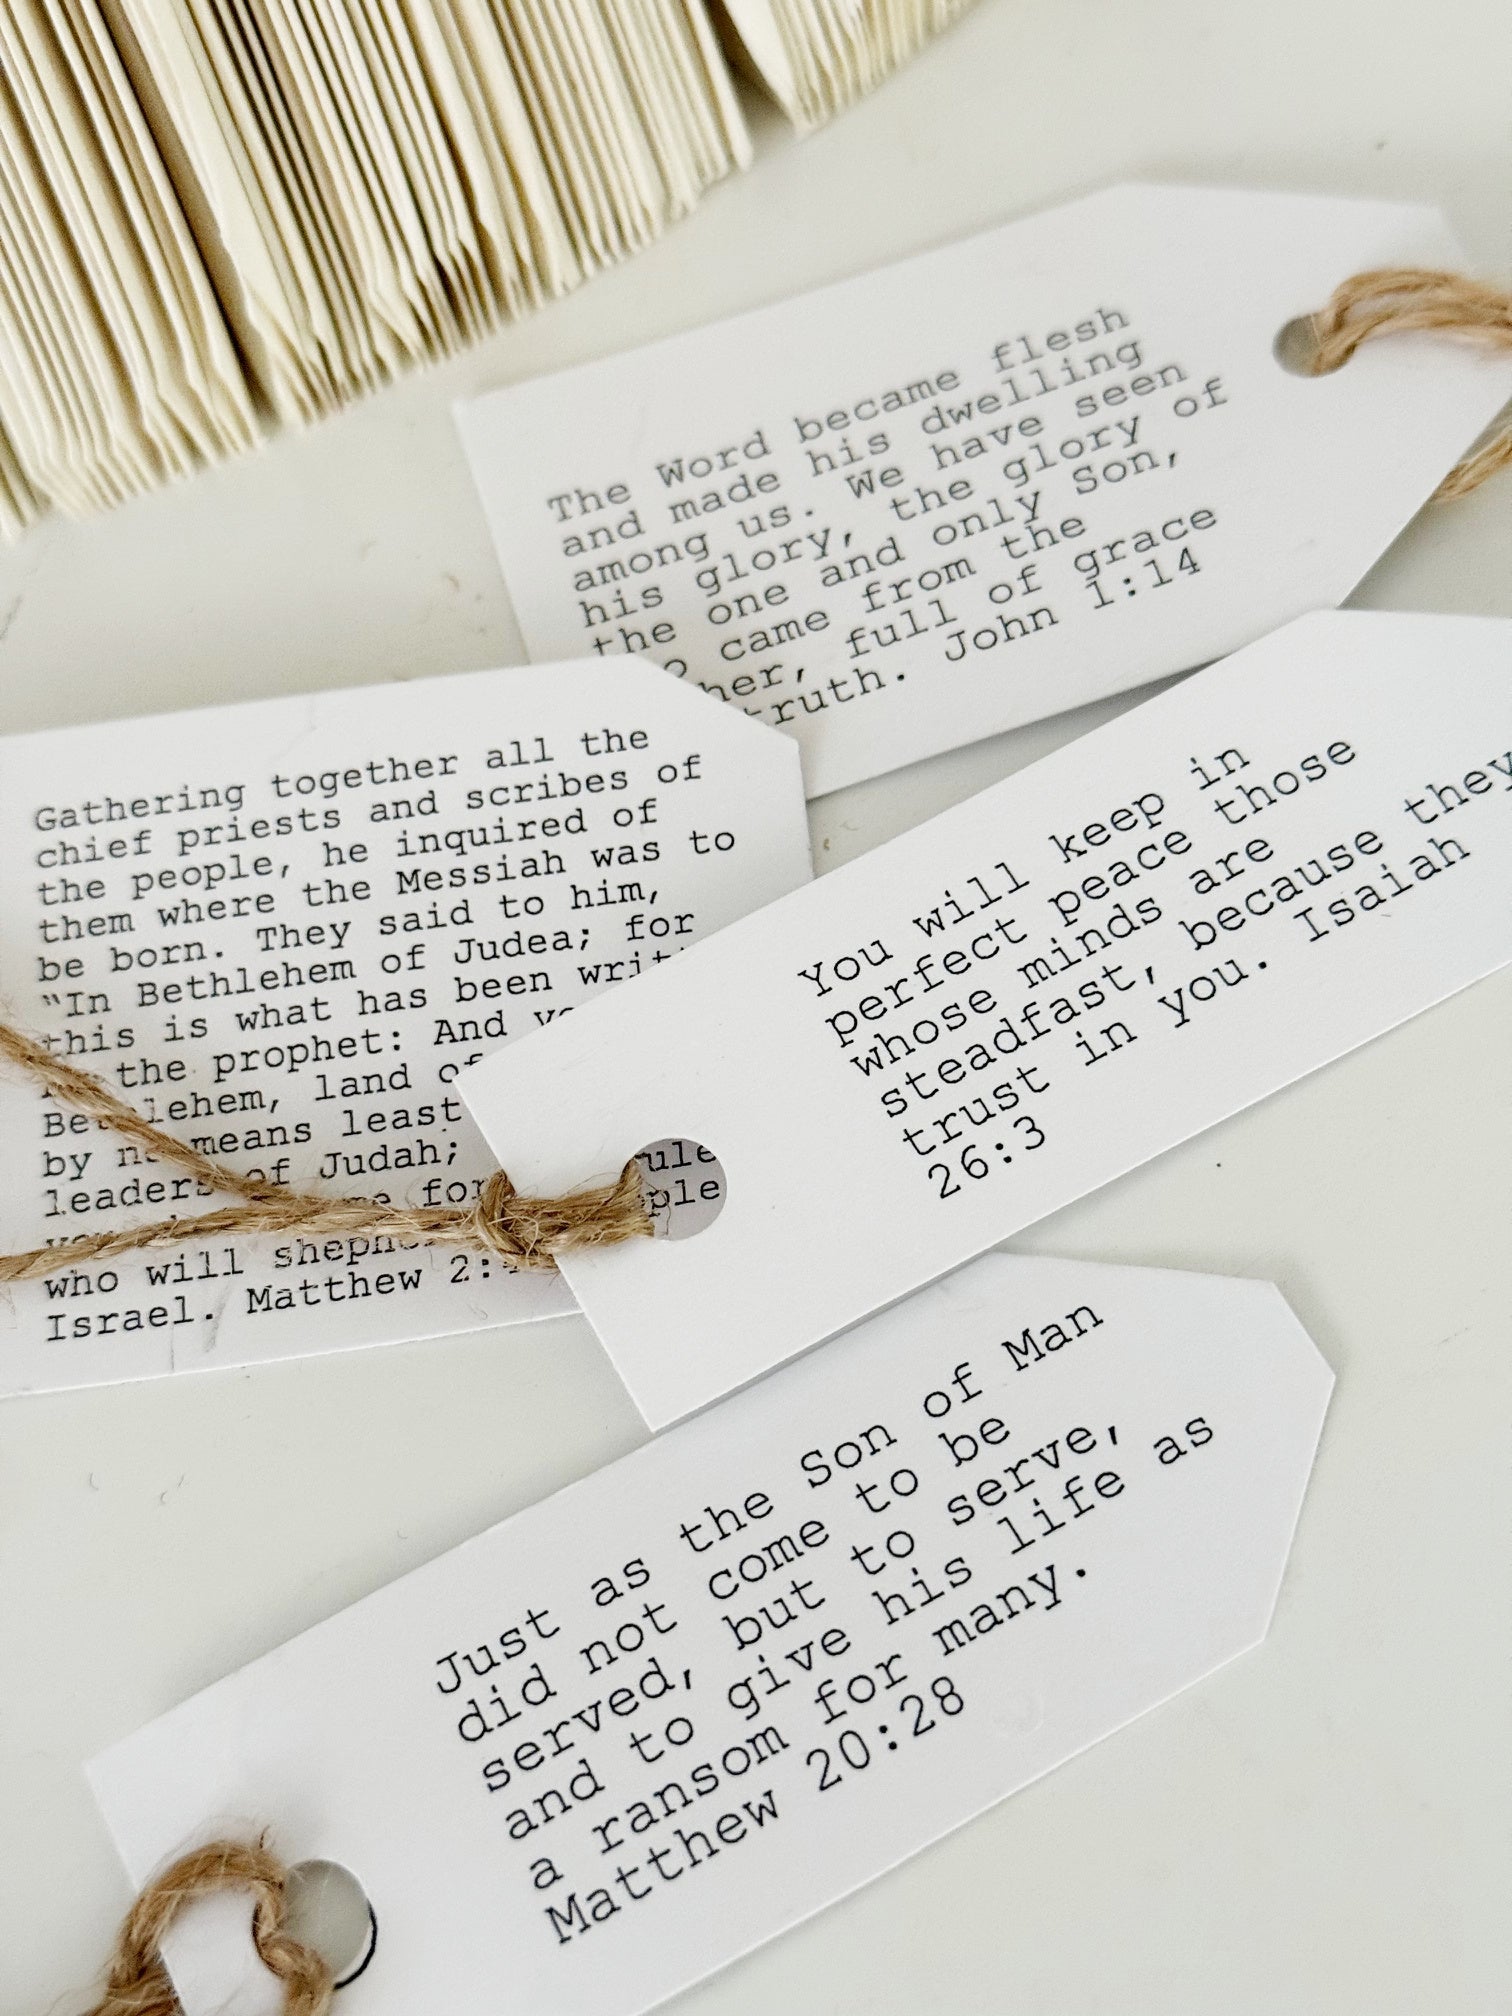 The Word became flesh
and made his dwelling
among us. We have seen
his glory, the glory of
the one and only Son,
came from the
full of grace
truth. John 1:14
Gathering together all the
chief priests and scribes of
the people, he inquired of
them where the Messiah was to
be born. They said to him,
“In Bethlehem of Judea; for
this is what has been
the prophet: And
Bethlehem, land of
by no means least
leaders of Judah;
for
who will
Israel. Matthew
You will keep in
perfect peace those
whose minds are
steadfast, because they
trust in you. Isaiah
26:3
Just as the Son of Man
did not come to be
served, but to serve,
and to give his life as
a ransom for many.
Matthew 20:28